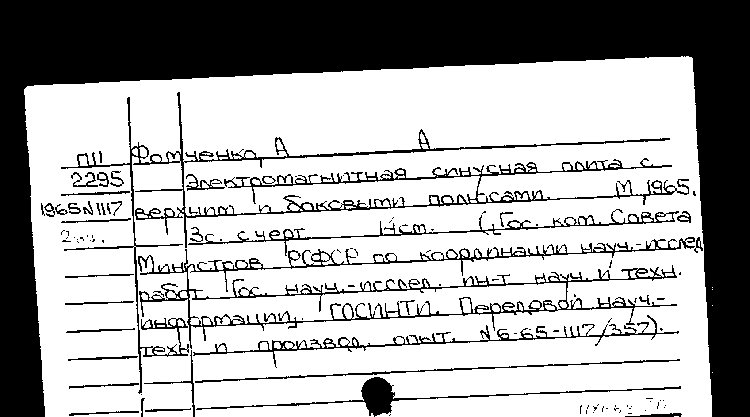 ПII Фомченко, А А
2295 Электромагнитная синусная плита с
1965 N1117 верхним и боковыми полюсами. М, 1965.
3с. с черт 14см. (Гос. ком. Совета
Министров РСФСР по координации науч.-исслед
работ. Гос. науч.-исслед. ин-т науч. и техн.
информации, ГОСИНТИ. Передовой науч.-
техн и производ. опыт. N6-65-1117/357).